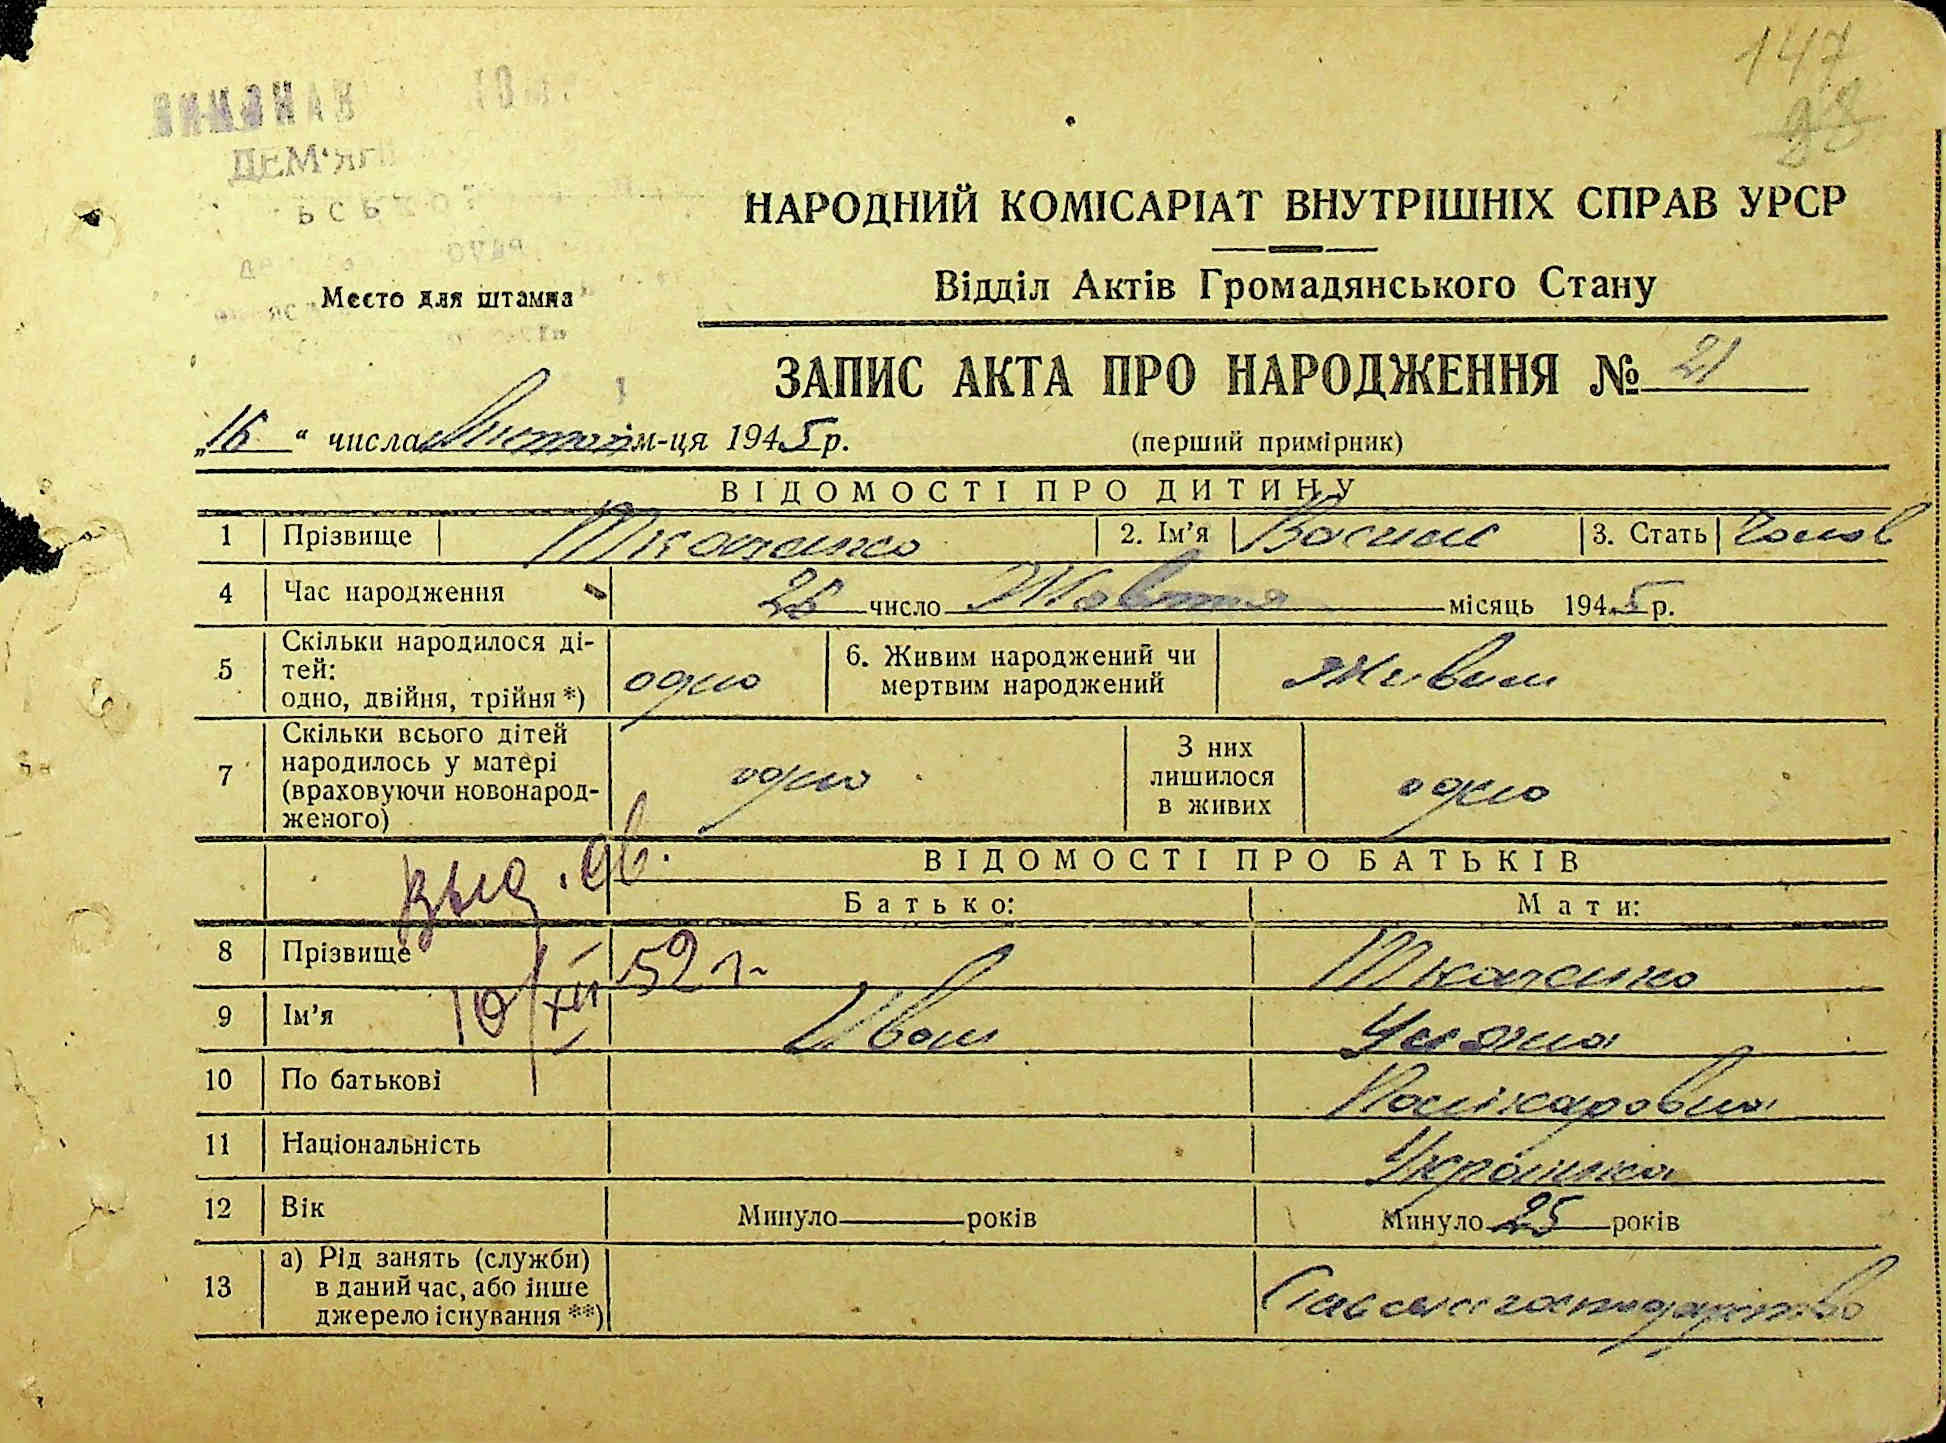 147
98
ДЕМ'ЯН
НАРОДНИЙ КОМІСАРІАТ ВНУТРІШНІХ СПРАВ УРСР
Место для штампа
Відділ Актів Громадянського Стану
ЗАПИС АКТА ПРО НАРОДЖЕННЯ № 21
„16“ числа Листопа м-ця 1945 р. (перший примірник)
ВІДОМОСТІ ПРО ДИТИНУ
1 Прізвище Ткаченко 2. Ім'я Василь 3. Стать Чолов
4 Час народження 28 число Жовтня місяць 1945 р.
5 Скільки народилося ді-
тей:
одно, двійня, трійня *) одно 6. Живим народжений чи
мертвим народжений Живим
7 Скільки всього дітей
народилось у матері
(враховуючи новонарод-
женого) одно З них
лишилося
в живих одно
ВІДОМОСТІ ПРО БАТЬКІВ
выд. дв.
Батько: Мати:
8 Прізвище Ткаченко
10/XII 52 г.
9 Ім'я Іван Уляна
10 По батькові Полікаровна
11 Національність Українка
12 Вік Минуло років Минуло 25 років
13 а) Рід занять (служби)
в даний час, або інше
джерело існування **) господарство